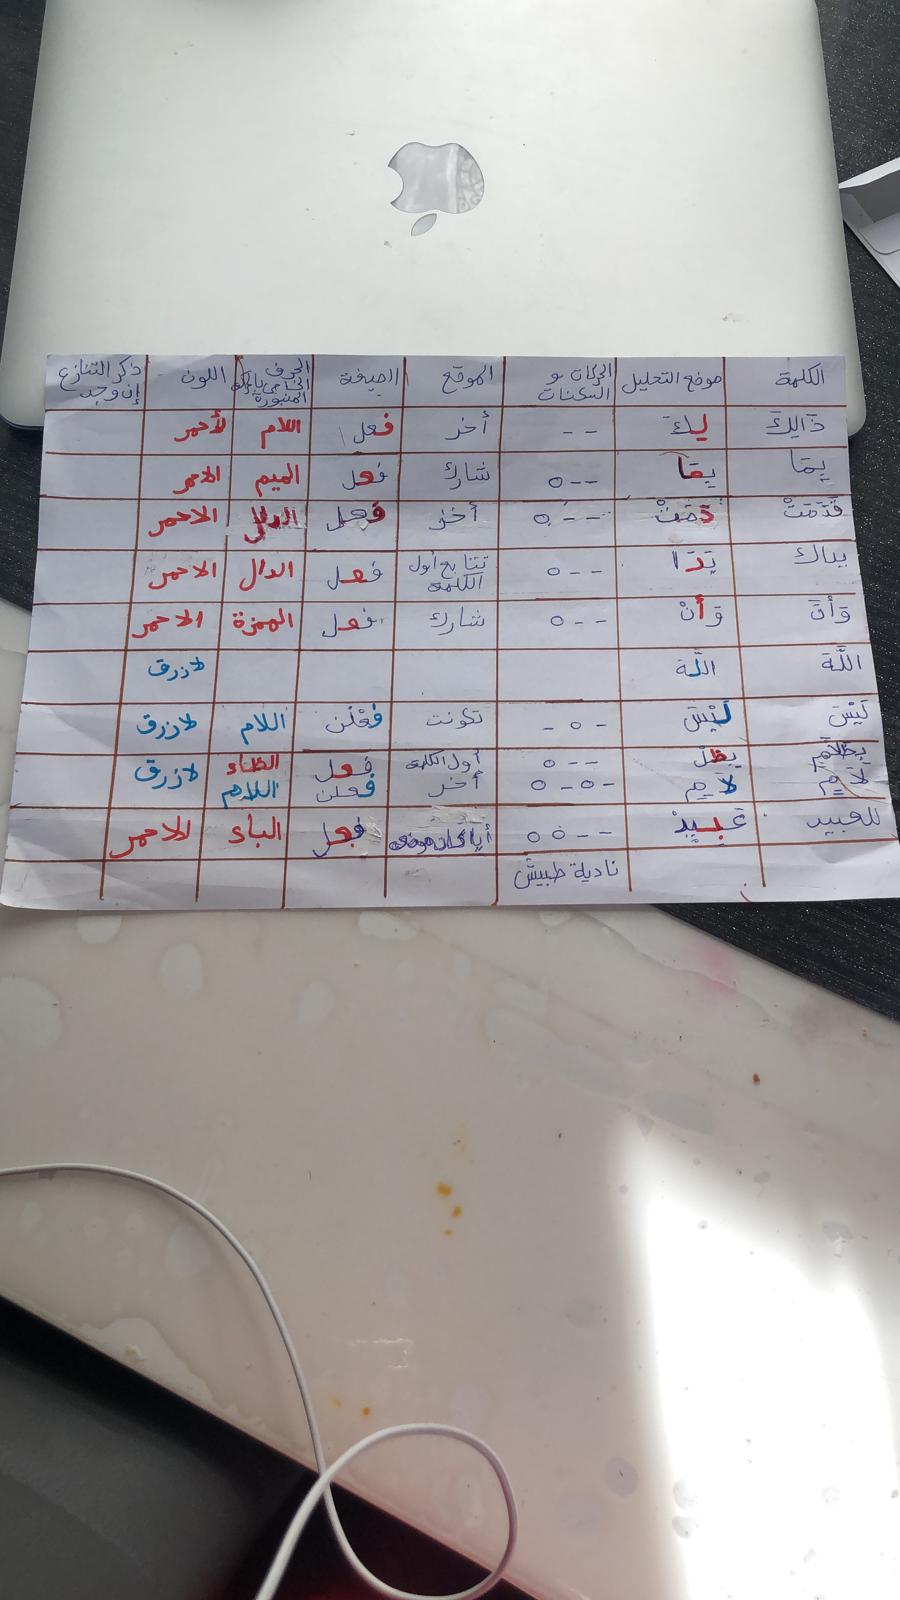 الكلمة موضع التحليل الحركات و السكنات الموقع الصيغة الحرف اللون ذكر التنازع إن وجد
ذَالِكَ لِكَ -- أخر فعل اللام لأحمر
بِمَا بِمَا --٥ شارك فعل الميم الاحمر
قَدَّمَتْ دَمَتْ --٥ أخر فعل الدال الاحمر
يداك يَدَا --٥ تتابع أول الكلمة فعل الدال الاحمر
وَأَنَّ وَأَنْ --٥ شارك فعل الهمزة الاحمر
اللَّهَ اللَّهَ لازرق
لَيْسَ لَيْسَ -٥- تكونت فعْلن اللام لازرق
بِظَلَّامٍ بِظَلْ --٥ أول الكلمة فعل الظاء
لَامٍ لَامٍ -٥-٥ أخر فعلن اللام لازرق
للعبيد عَبِيدْ --٥٥ فعل الباء الاحمر
نادية طبيش